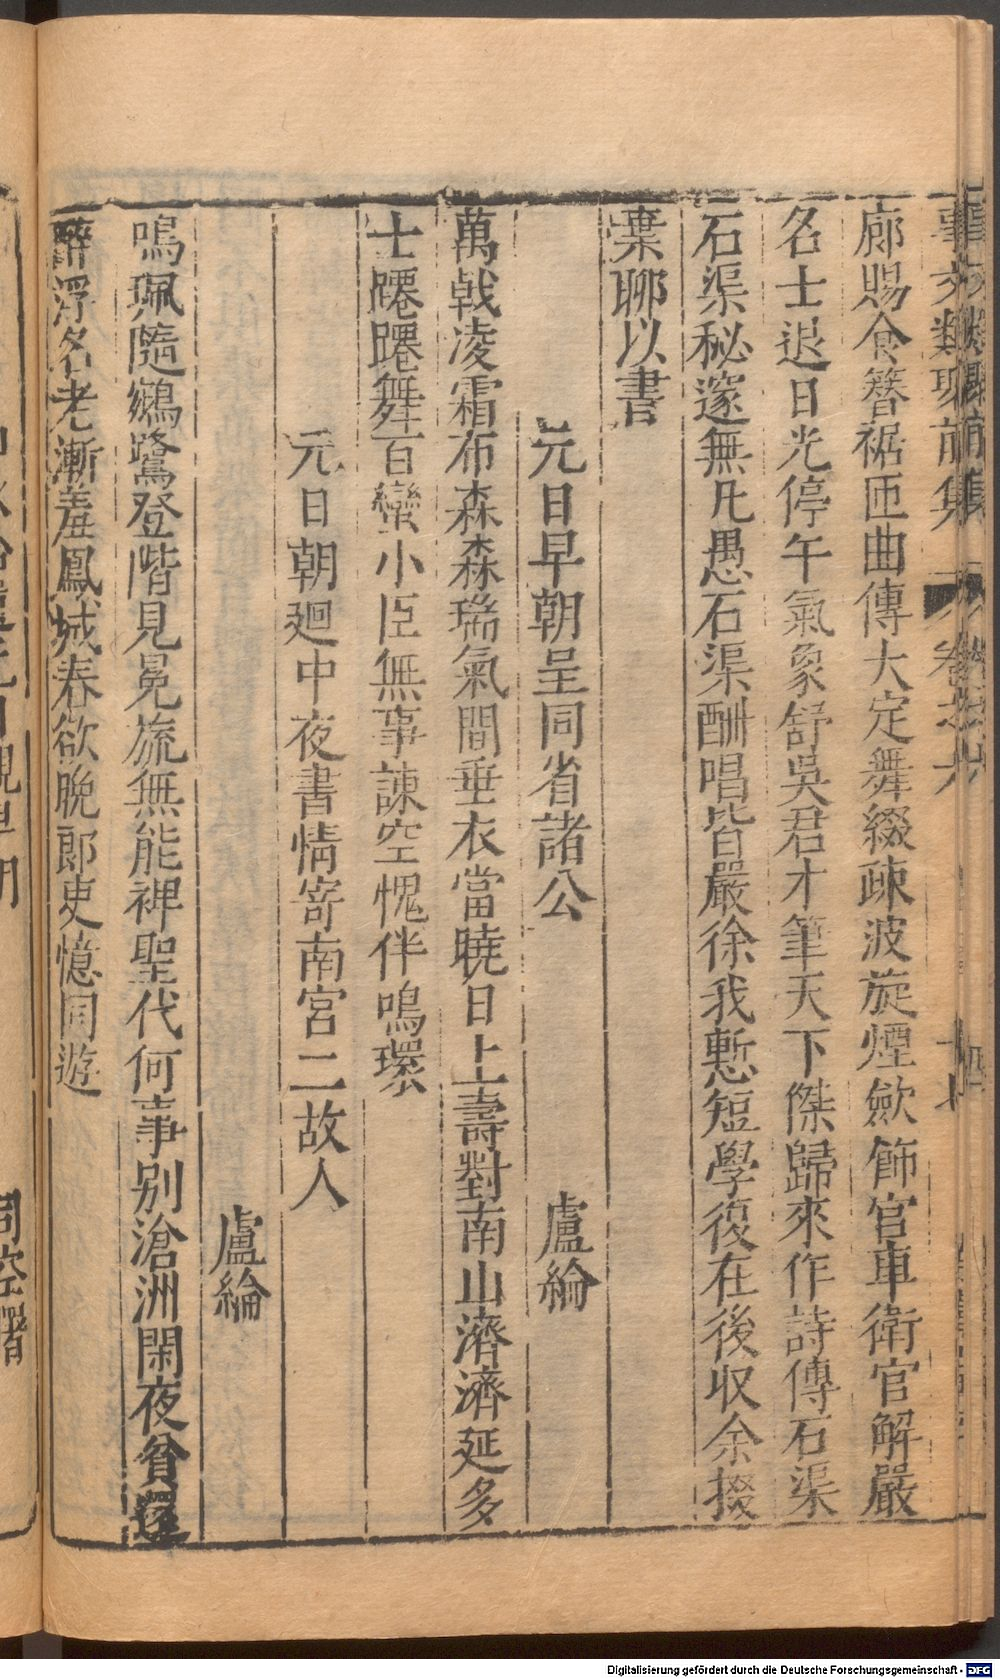 事文類聚前集 卷之六
廊賜食簪裾匝曲傳大定舞綴疎波旋煙歛飾官車衛官解嚴
名士退日光停午氣象舒吳君才筆天下傑歸來作詩傳石渠
石渠秘邃無凡愚石渠酬唱皆嚴徐我慙短學復在後収余掇
棄聊以書
元日早朝呈同省諸公
盧綸
萬戟凌霜布森森瑞氣間垂衣當曉日上壽對南山濟濟延多
士躚躚舞百蠻小臣無事諫空愧伴鳴環
元日朝廻中夜書情寄南宮二故人
盧綸
鳴珮隨鵷鷺登階見冕旒無能裨聖代何事別滄洲閑夜貧還
醉浮名老漸羞鳳城春欲晚郎吏憶同遊
Digitalisierung gefördert durch die Deutsche Forschungsgemeinschaft - DFG